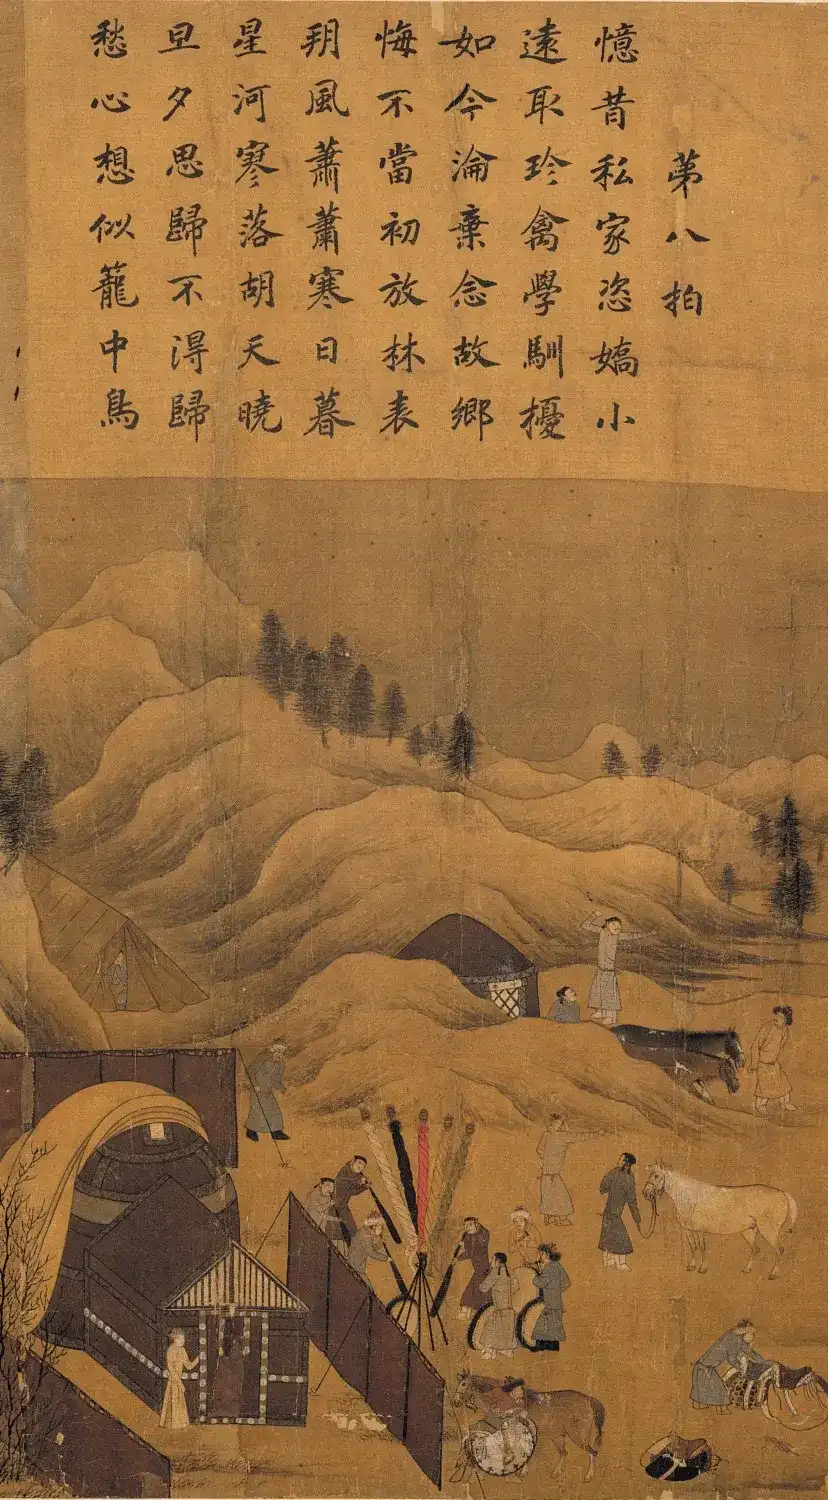 第八拍
憶昔私家恣嬌小
遠取珍禽學馴擾
如今淪棄念故鄉
悔不當初放林表
朔風蕭蕭寒日暮
星河寥落胡天曉
旦夕思歸不得歸
愁心想似籠中鳥